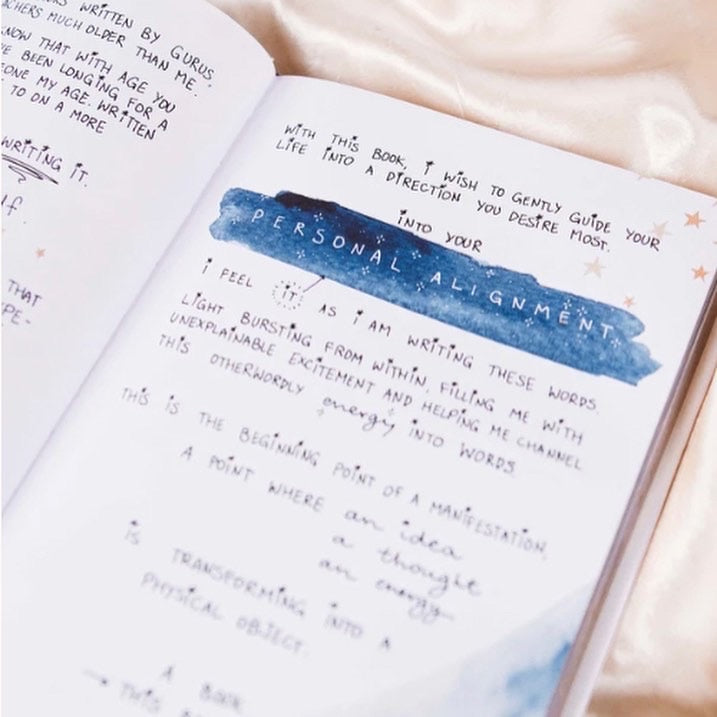 WRITTEN BY GURUS,
MUCH OLDER THAN ME.
THAT WITH AGE YOU
BEEN LONGING FOR A
MY AGE. WRITTEN
TO ON A MORE
WRITING IT.
THAT
WITH THIS BOOK, I WISH TO GENTLY GUIDE YOUR
LIFE INTO A DIRECTION YOU DESIRE MOST.
INTO YOUR
PERSONAL ALIGNMENT
I FEEL IT AS I AM WRITING THESE WORDS.
LIGHT BURSTING FROM WITHIN, FILLING ME WITH
UNEXPLAINABLE EXCITEMENT AND HELPING ME CHANNEL
THIS OTHERWORDLY energy INTO WORDS.
THIS IS THE BEGINNING POINT OF A MANIFESTATION,
A POINT WHERE an idea
a thought
an energy
IS TRANSFORMING INTO A
PHYSICAL OBJECT.
A BOOK
→ THIS